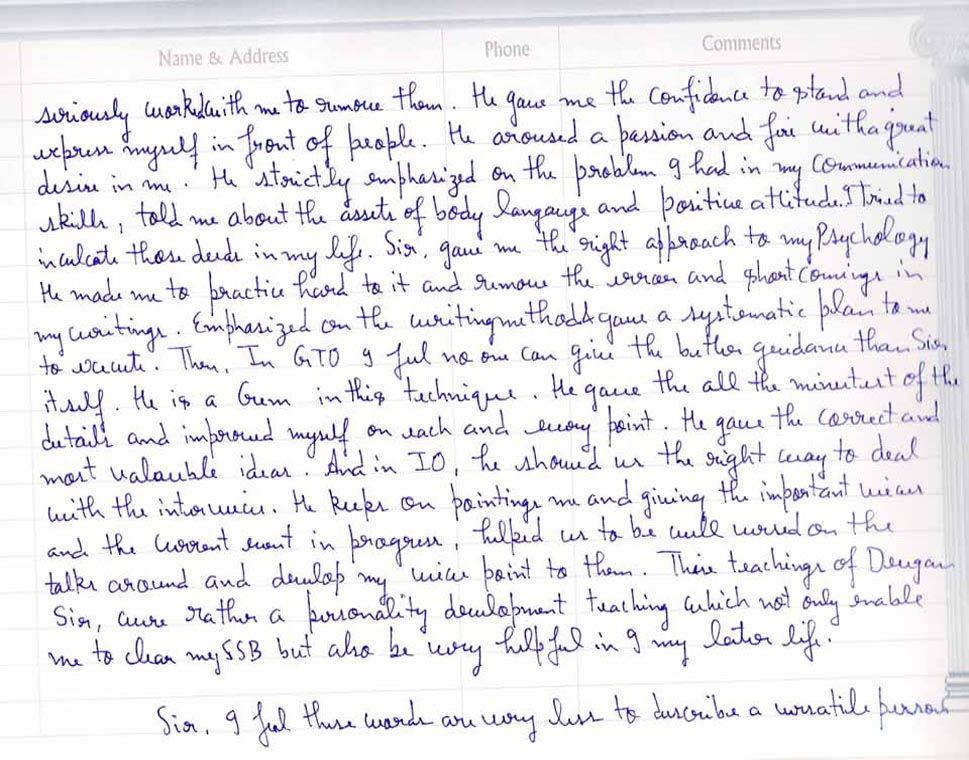 Name & Address Phone Comments
seriously worked with me to remove them. He gave me the confidence to stand and
express myself in front of people. He aroused a passion and fire with a great
desire in me. He strictly emphasized on the problem I had in my Communication
skills, told me about the assets of body langauge and positive attitude. I tried to
inculcate those deeds in my life. Sir, gave me the right approach to my Psychology
He made me to practice hard to it and remove the errors and shortcomings in
my writings. Emphasized on the writing method & gave a systematic plan to me
to execute. Then, In GTO I feel no one can give the better guidance than Sir
itself. He is a Gem in this technique. He gave the all the minutest of the
details and improved myself on each and every point. He gave the correct and
most valauble ideas. And in IO, he showed us the right way to deal
with the interview. He keeps on pointings me and giving the important views
and the current event in progress, helped us to be well versed on the
talks around and develop my view point to them. These teachings of Dewgan
Sir, were rather a personality development teaching which not only enable
me to clear my SSB but also be very helpful in I my later life.
Sir, I feel these words are very less to describe a versatile person